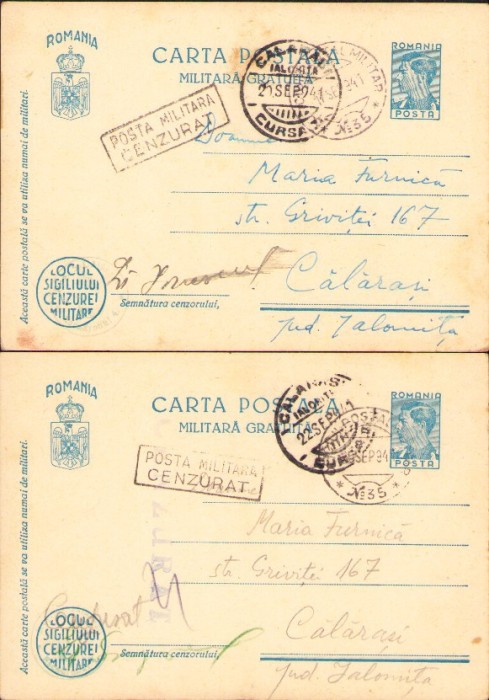 ROMANIA
CARTA POSTALA
MILITARĂ GRATUITĂ
ROMANIA
POSTA
CALARASI
IALOMITA
21 SEP 941
CURSA
MILITAR
№ 35
POSTA MILITARA
CENZURAT
Doamnei
Maria Furnică
str. Griviței 167
Călărași
jud. Ialomița
LOCUL
SIGILIULUI
CENZUREI
MILITARE
Semnătura cenzorului,
Această carte postală se va utiliza numai de militari.
ROMANIA
CARTA POSTALA
MILITARĂ GRATUITĂ
ROMANIA
POSTA
CALARASI
22 SEP 941
POSTAL
SEP 94
№ 35
POSTA MILITARA
CENZURAT
Maria Furnică
str. Griviței 167
Călărași
jud. Ialomița
Cenzurat
LOCUL
SIGILIULUI
CENZUREI
MILITARE
Semnătura cenzorului,
Această carte postală se va utiliza numai de militari.